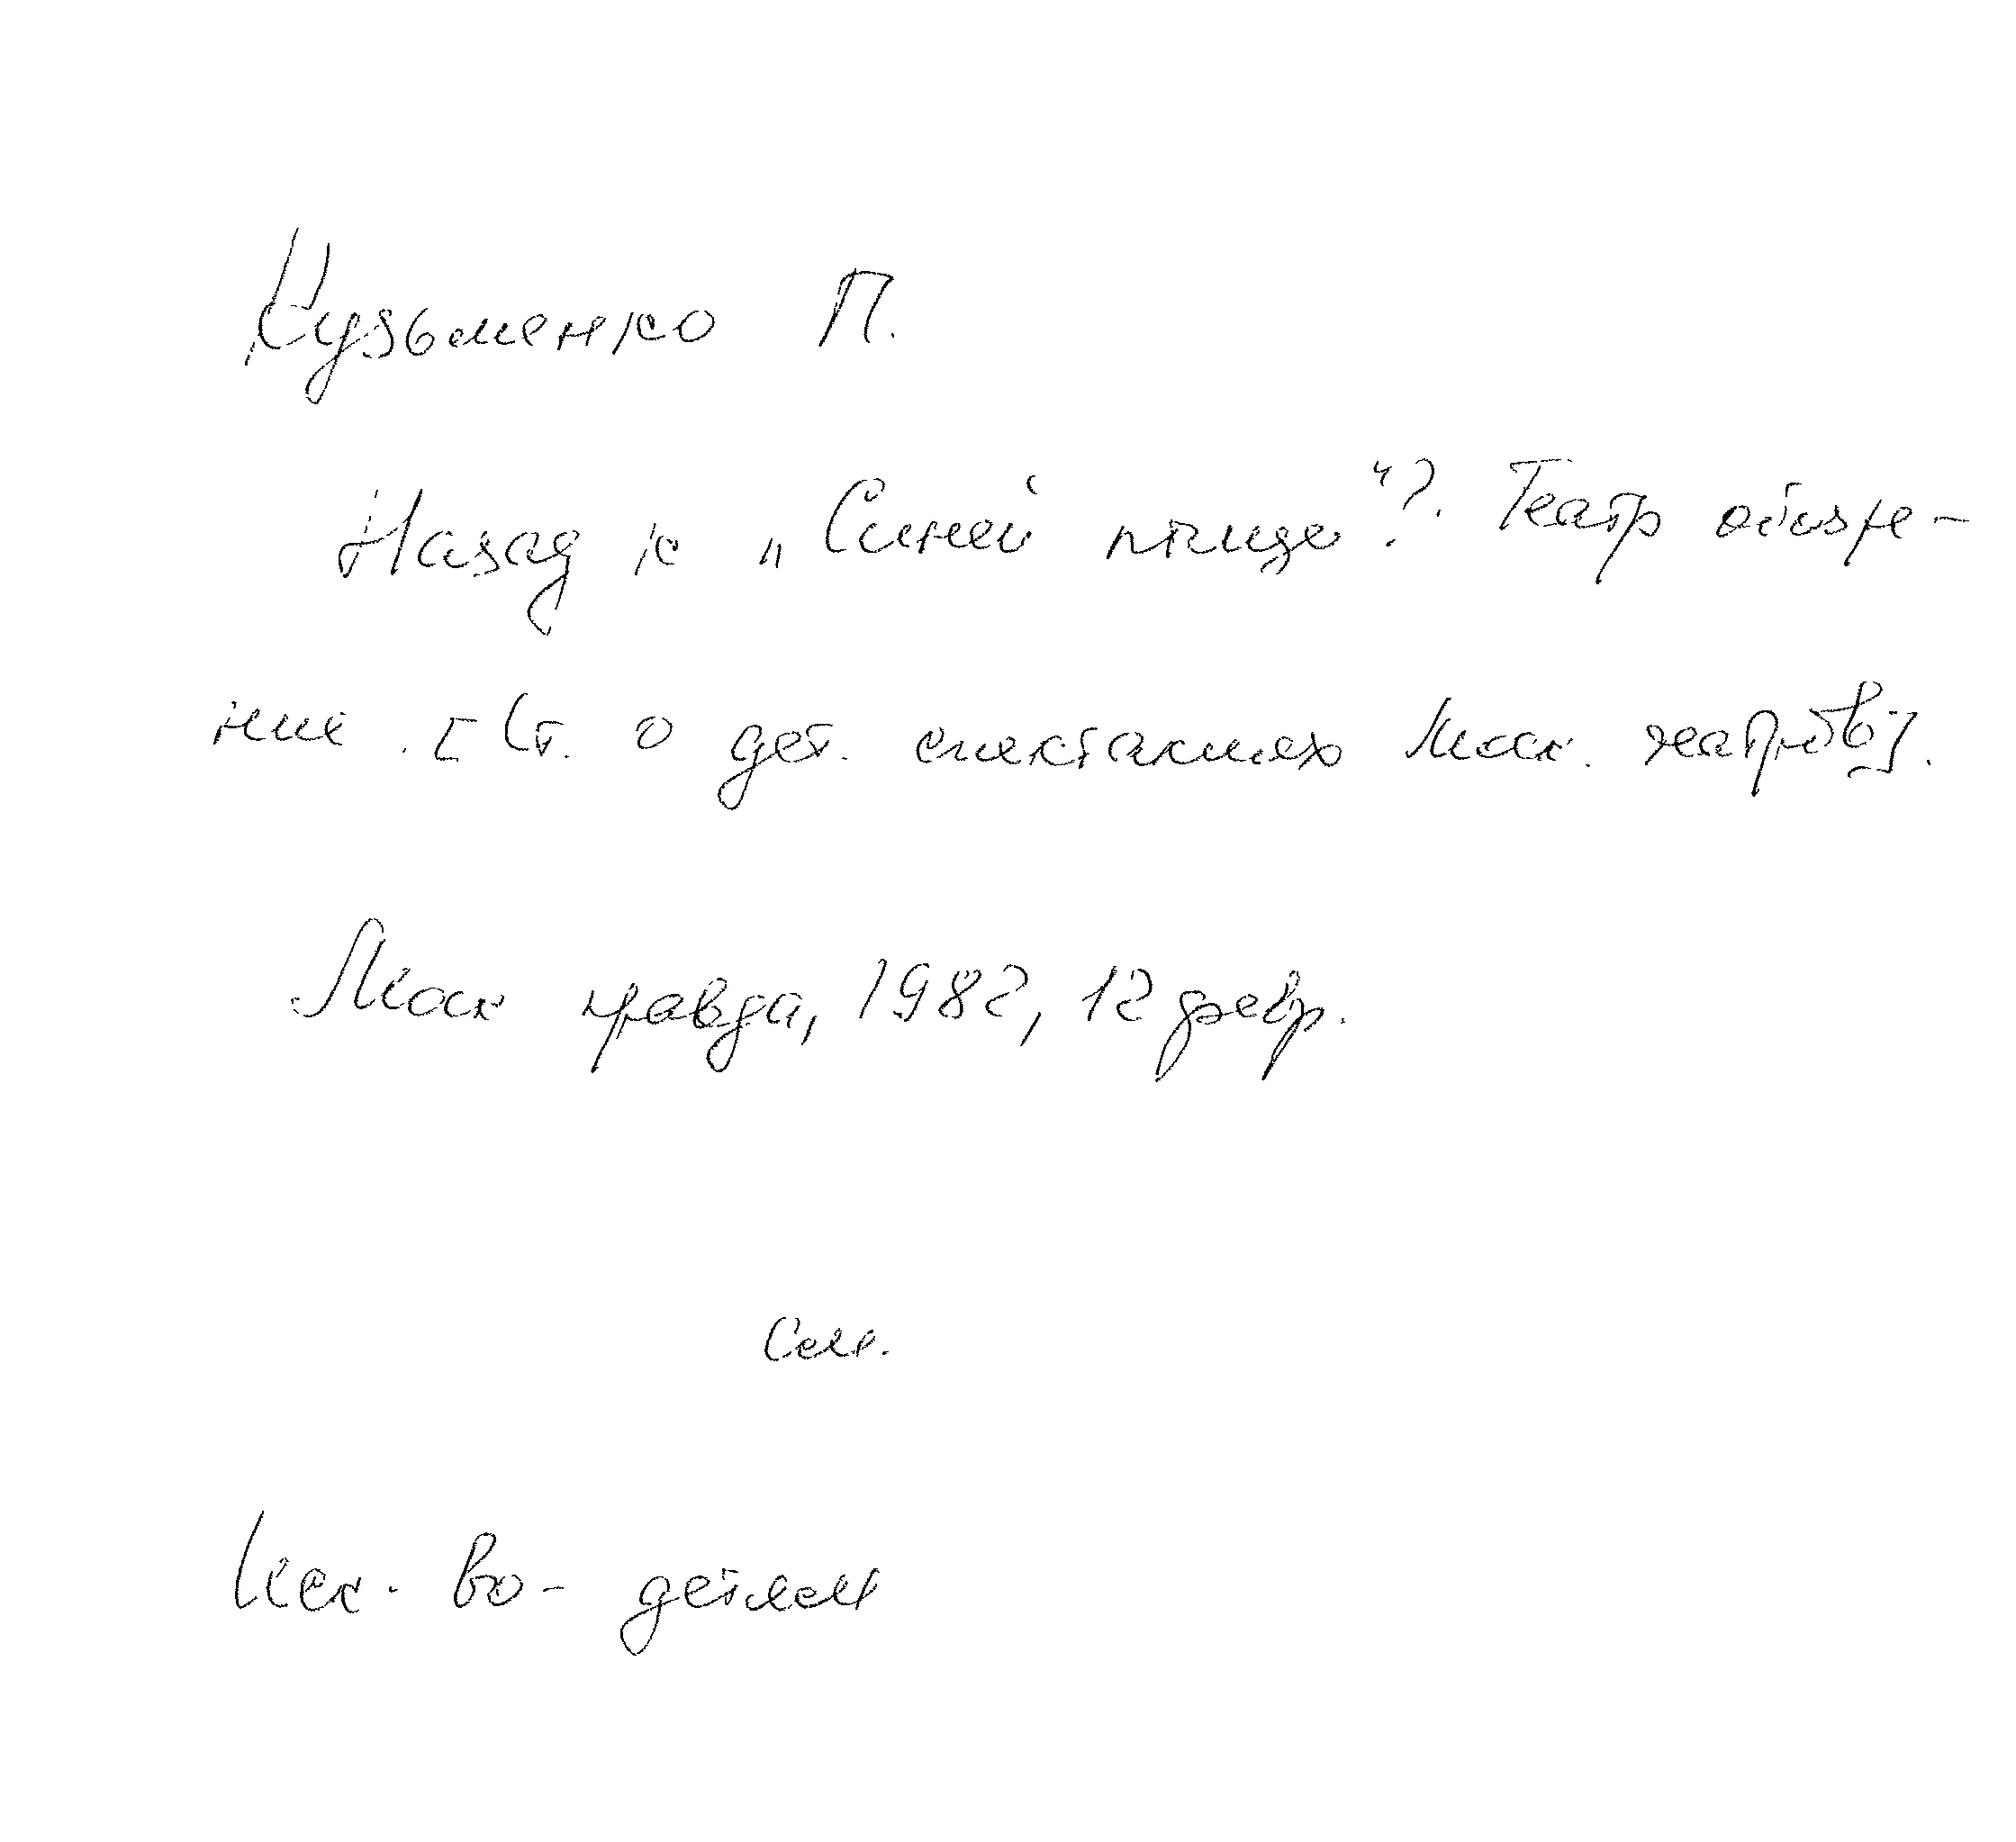 Кузьменко П.
Назад к „Синей птице“?. Театр обозре-
ние. [Ст. о дет. спектаклях Моск. театров].
Моск правда, 1982, 12 февр.
Сем.
Иск-во - детям